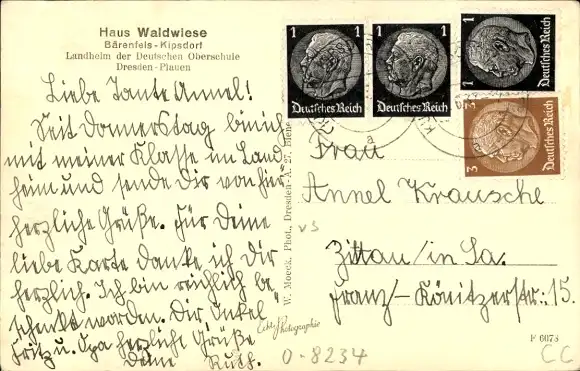 Haus Waldwiese
Bärenfels-Kipsdorf
Landheim der Deutschen Oberschule
Dresden-Plauen
Liebe Tante Annel!
Seit Donnerstag bin ich
mit meiner Klasse im Land
heim und sende dir von hier
herzliche Grüße. Für Deine
liebe Karte danke ich dir
herzlich. Ich bin reichlich be
schenkt worden. Dir, Onkel
Fritz u. Opa herzliche Grüße
Deine Ruth.
W. Moeck, Phot., Dresden-A. 27, Biene
Echte Photographie
1 1
Deutsches Reich
1 1
Deutsches Reich
1
Deutsches Reich
3 3
Deutsches Reich
a
Frau
Annel Krausche
vs
Zittau/in Sa.
Franz-Könitzerstr. 15.
F 6073
0-8234
CC